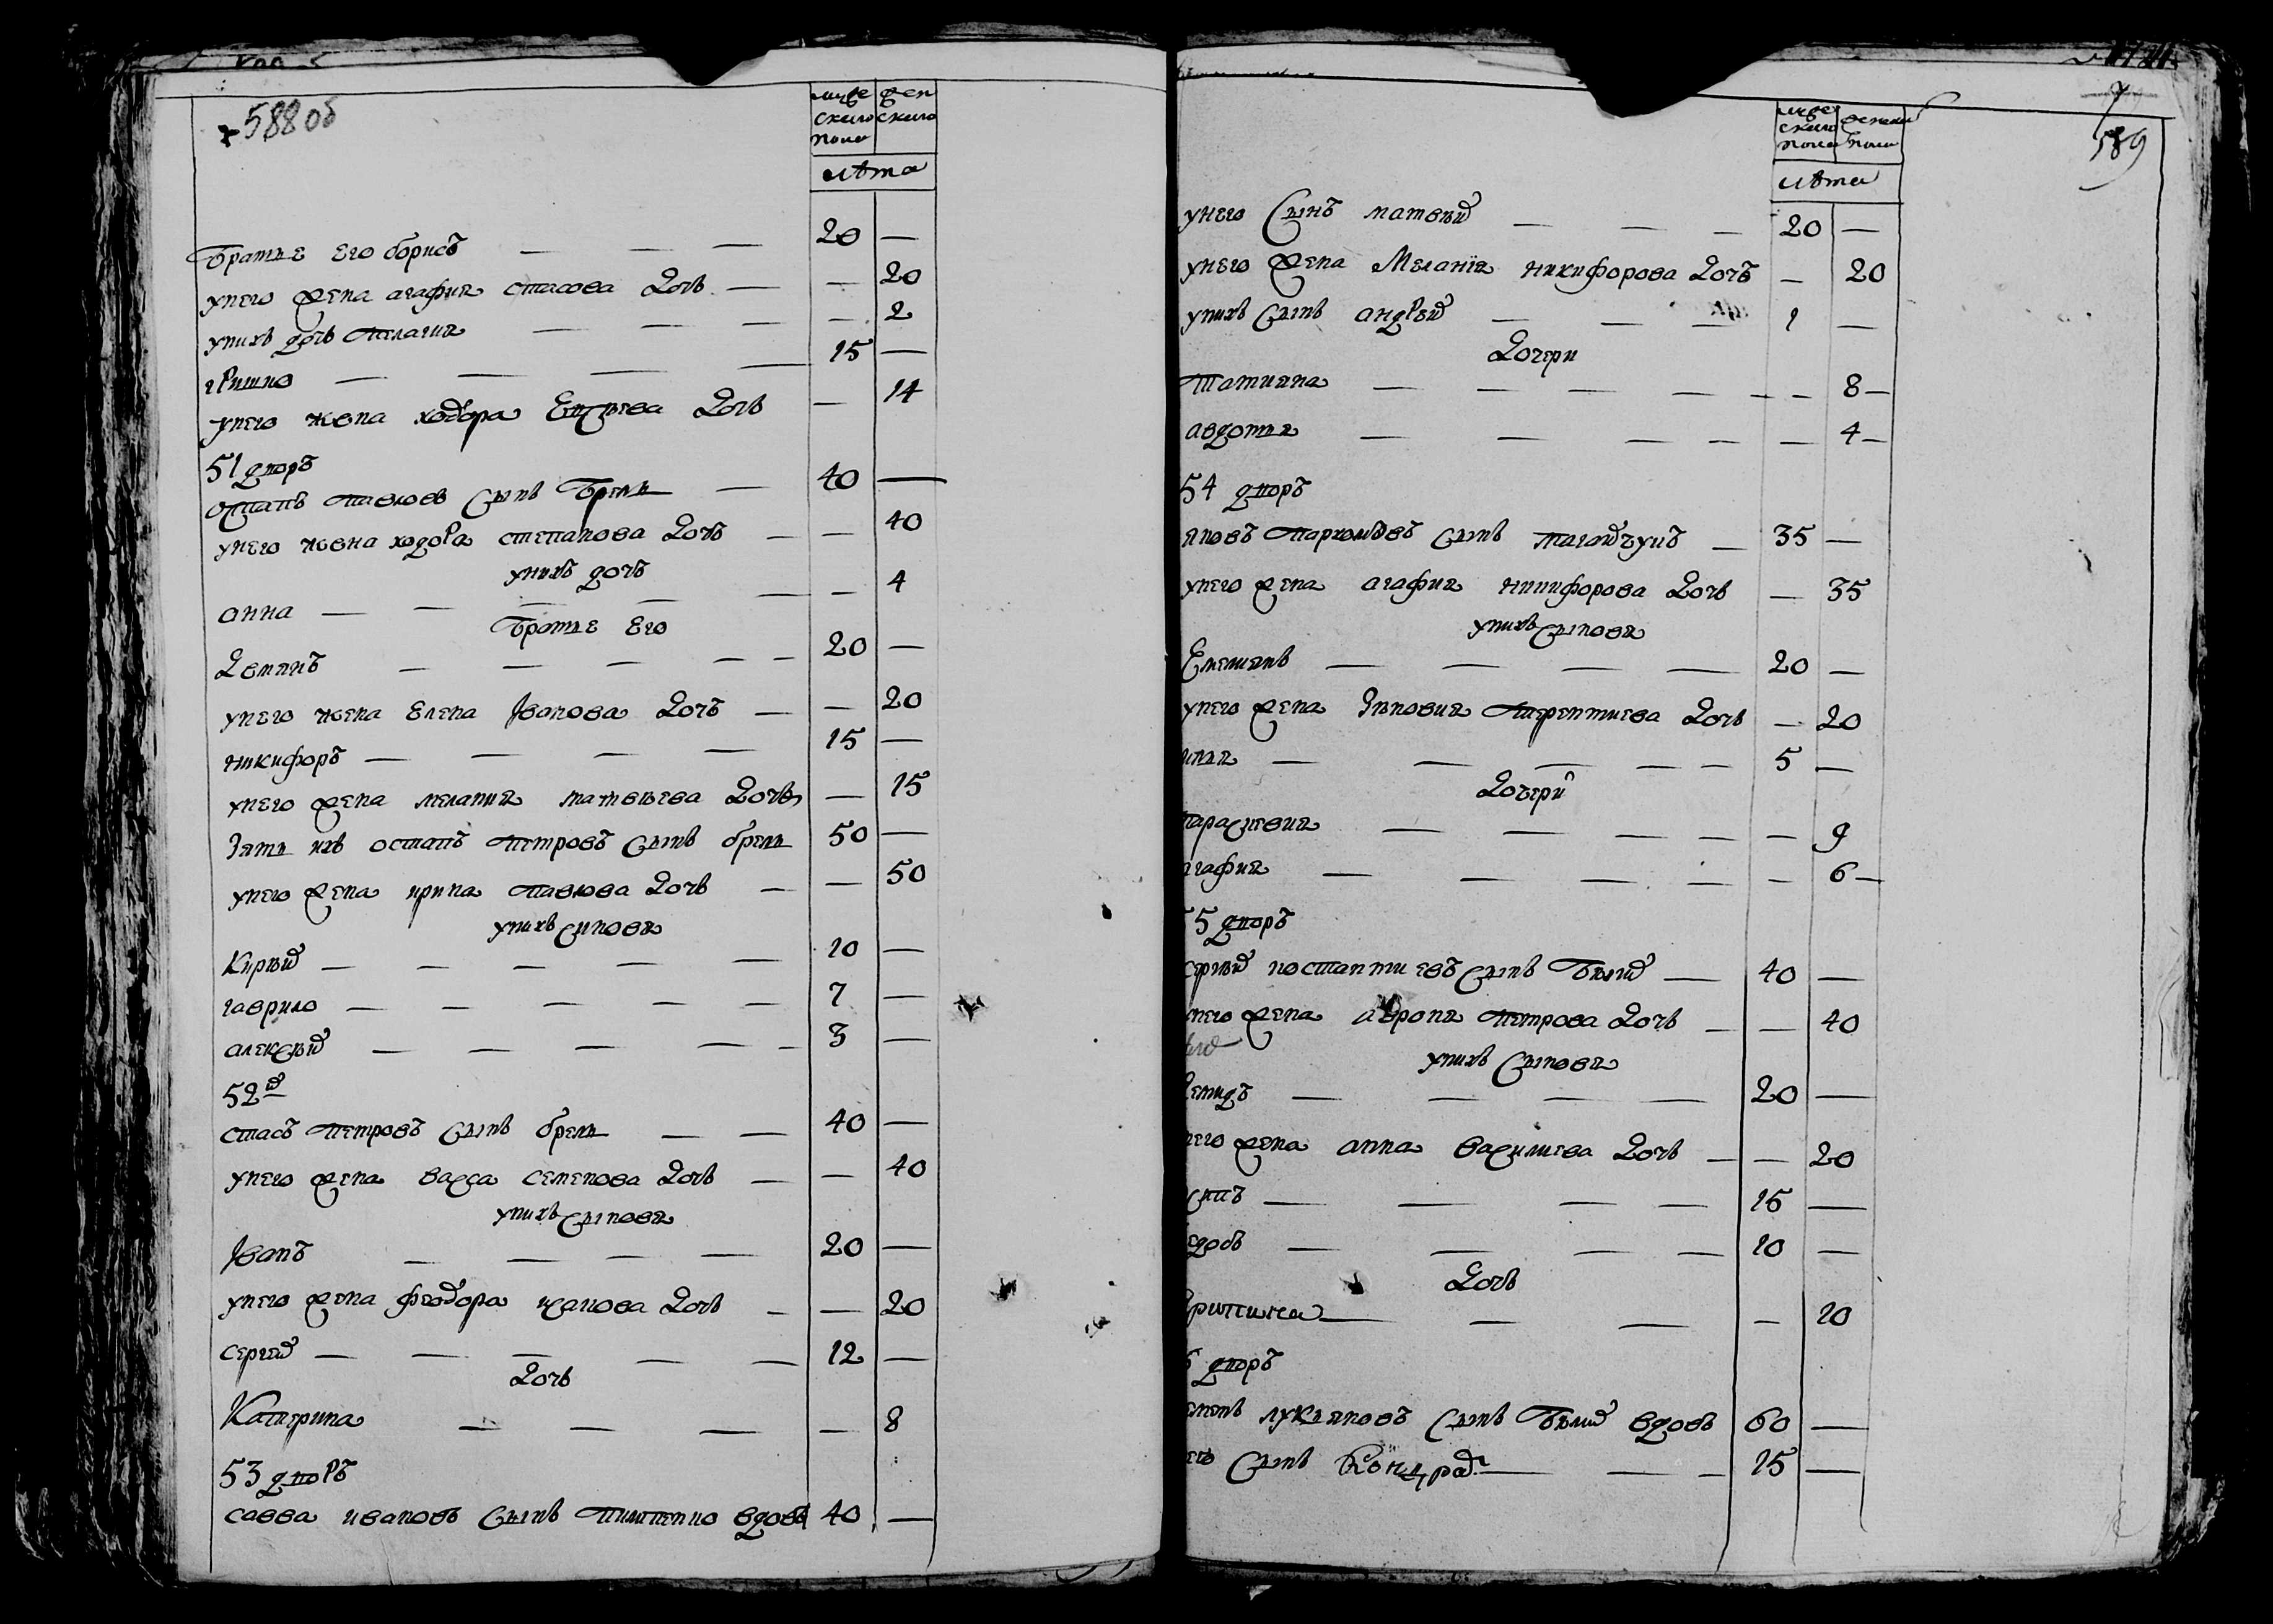 588 об
муже
ского
пола
жен
ского
лѣта
братье его борисъ — — — 20 —
унего жена агафия стасова дочь — — 20
унихъ дочь пелагия — — — — 2
гришко — — — — 15 —
унего жена ходора дочь — 14
51 дворъ
остапъ павловъ сынъ брель — 40 —
унего жена ходора степанова дочь — — 40
унихъ дочь
анна — — — — — — 4
братье его
демянъ — — — — — 20 —
унего жена елена Іванова дочъ — — 20
никифоръ — — — — 15 —
унего жена мелания матвѣева дочь — 15
зять ихъ остапъ петровъ сынъ брель 50 —
унего жена ирина павлова дочь — — 50
унихъ синовя
Кирѣй — — — — — 10 —
гаврило — — — — — 7 —
алексѣй — — — — — 3 —
52й
стасъ петровъ сынъ брель — — 40 —
унего жена васса семенова дочь — — 40
унихъ сыновя
Іванъ — — — — 20 —
унего жена феодора дочь — — 20
сергей — — — — — 12 —
дочь
Катерина — — — — 8
53 дворъ
савва ивановъ сынъ вдовъ 40 —
589
муже
ского
пола
женска
пола
лѣта
унего сынъ матвѣй — — — 20 —
унего жена Меланїя никифорова дочъ — 20
унихъ сынъ андрѣй — — — 1 —
дочери
татияна — — — — — — 8 —
авдотия — — — — — 4 —
54 дворъ
яковъ пархомовъ сынъ — 35 —
унего жена агафия никифорова дочь — 35
унихъ сыновя
Емелиянъ — — — — 20 —
унего жена зѣновия терентиева дочь — 20
илия — — — — — 5 —
дочери
параскевия — — — — — 9
агафия — — — — — 6 —
55 дворъ
сергѣй костантиевъ сынъ бѣлий — 40 —
унего жена петрова дочь — — 40
унихъ сыновя
демидъ — — — — 20 —
него жена анна василиева дочь — — 20
— — — — 15 —
— — — — 10 —
дочь
— — — — 10
6 дворъ
лукияновъ сынъ бѣлий вдовъ 60 —
его сынъ Кондрат — — — 15 —